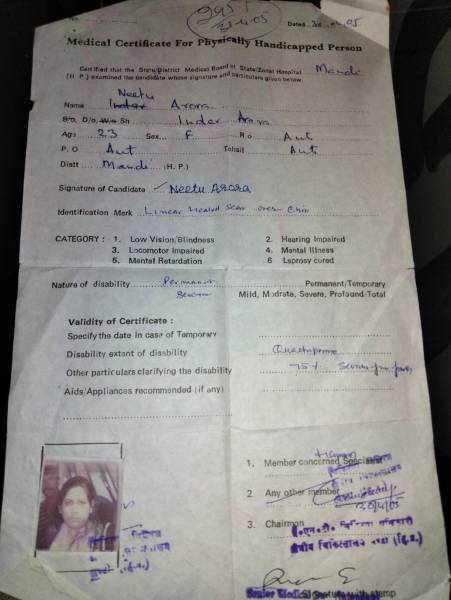 295
30.4.05
Dated 30.4.05
Medical Certificate For Physically Handicapped Person
Certified that the State/District Medical Board at State/Zonal Hospital Mandi
(H. P.) examined the candidate whose signature and particulars given below.
Neetu
Name Inder Arora
S/o, D/o, W/o Sh Inder Arora
Age 23 Sex F R o Aut
P. O Aut Tehsil Aut
Distt Mandi (H. P.)
Signature of Candidate Neetu Arora
Identification Mark Linear Healed Scar over Chin
CATEGORY : 1. Low Vision/Blindness 2. Hearing Impaired
3. Locomotor Impaired 4. Mental Illness
5. Mental Retardation 6 Leprosy cured
Nature of disability Permanent Permanent/Temporary
Severe Mild, Modrate, Severe, Profound/Total
Validity of Certificate :
Specify the date in case of Temporary
Disability extent of disability
Other particulars clarifying the disability 75%
Aids/Appliances recommended (if any)
1. Member concerned Specialist
2. Any other member
30/4/05
3. Chairman
Signature with stamp